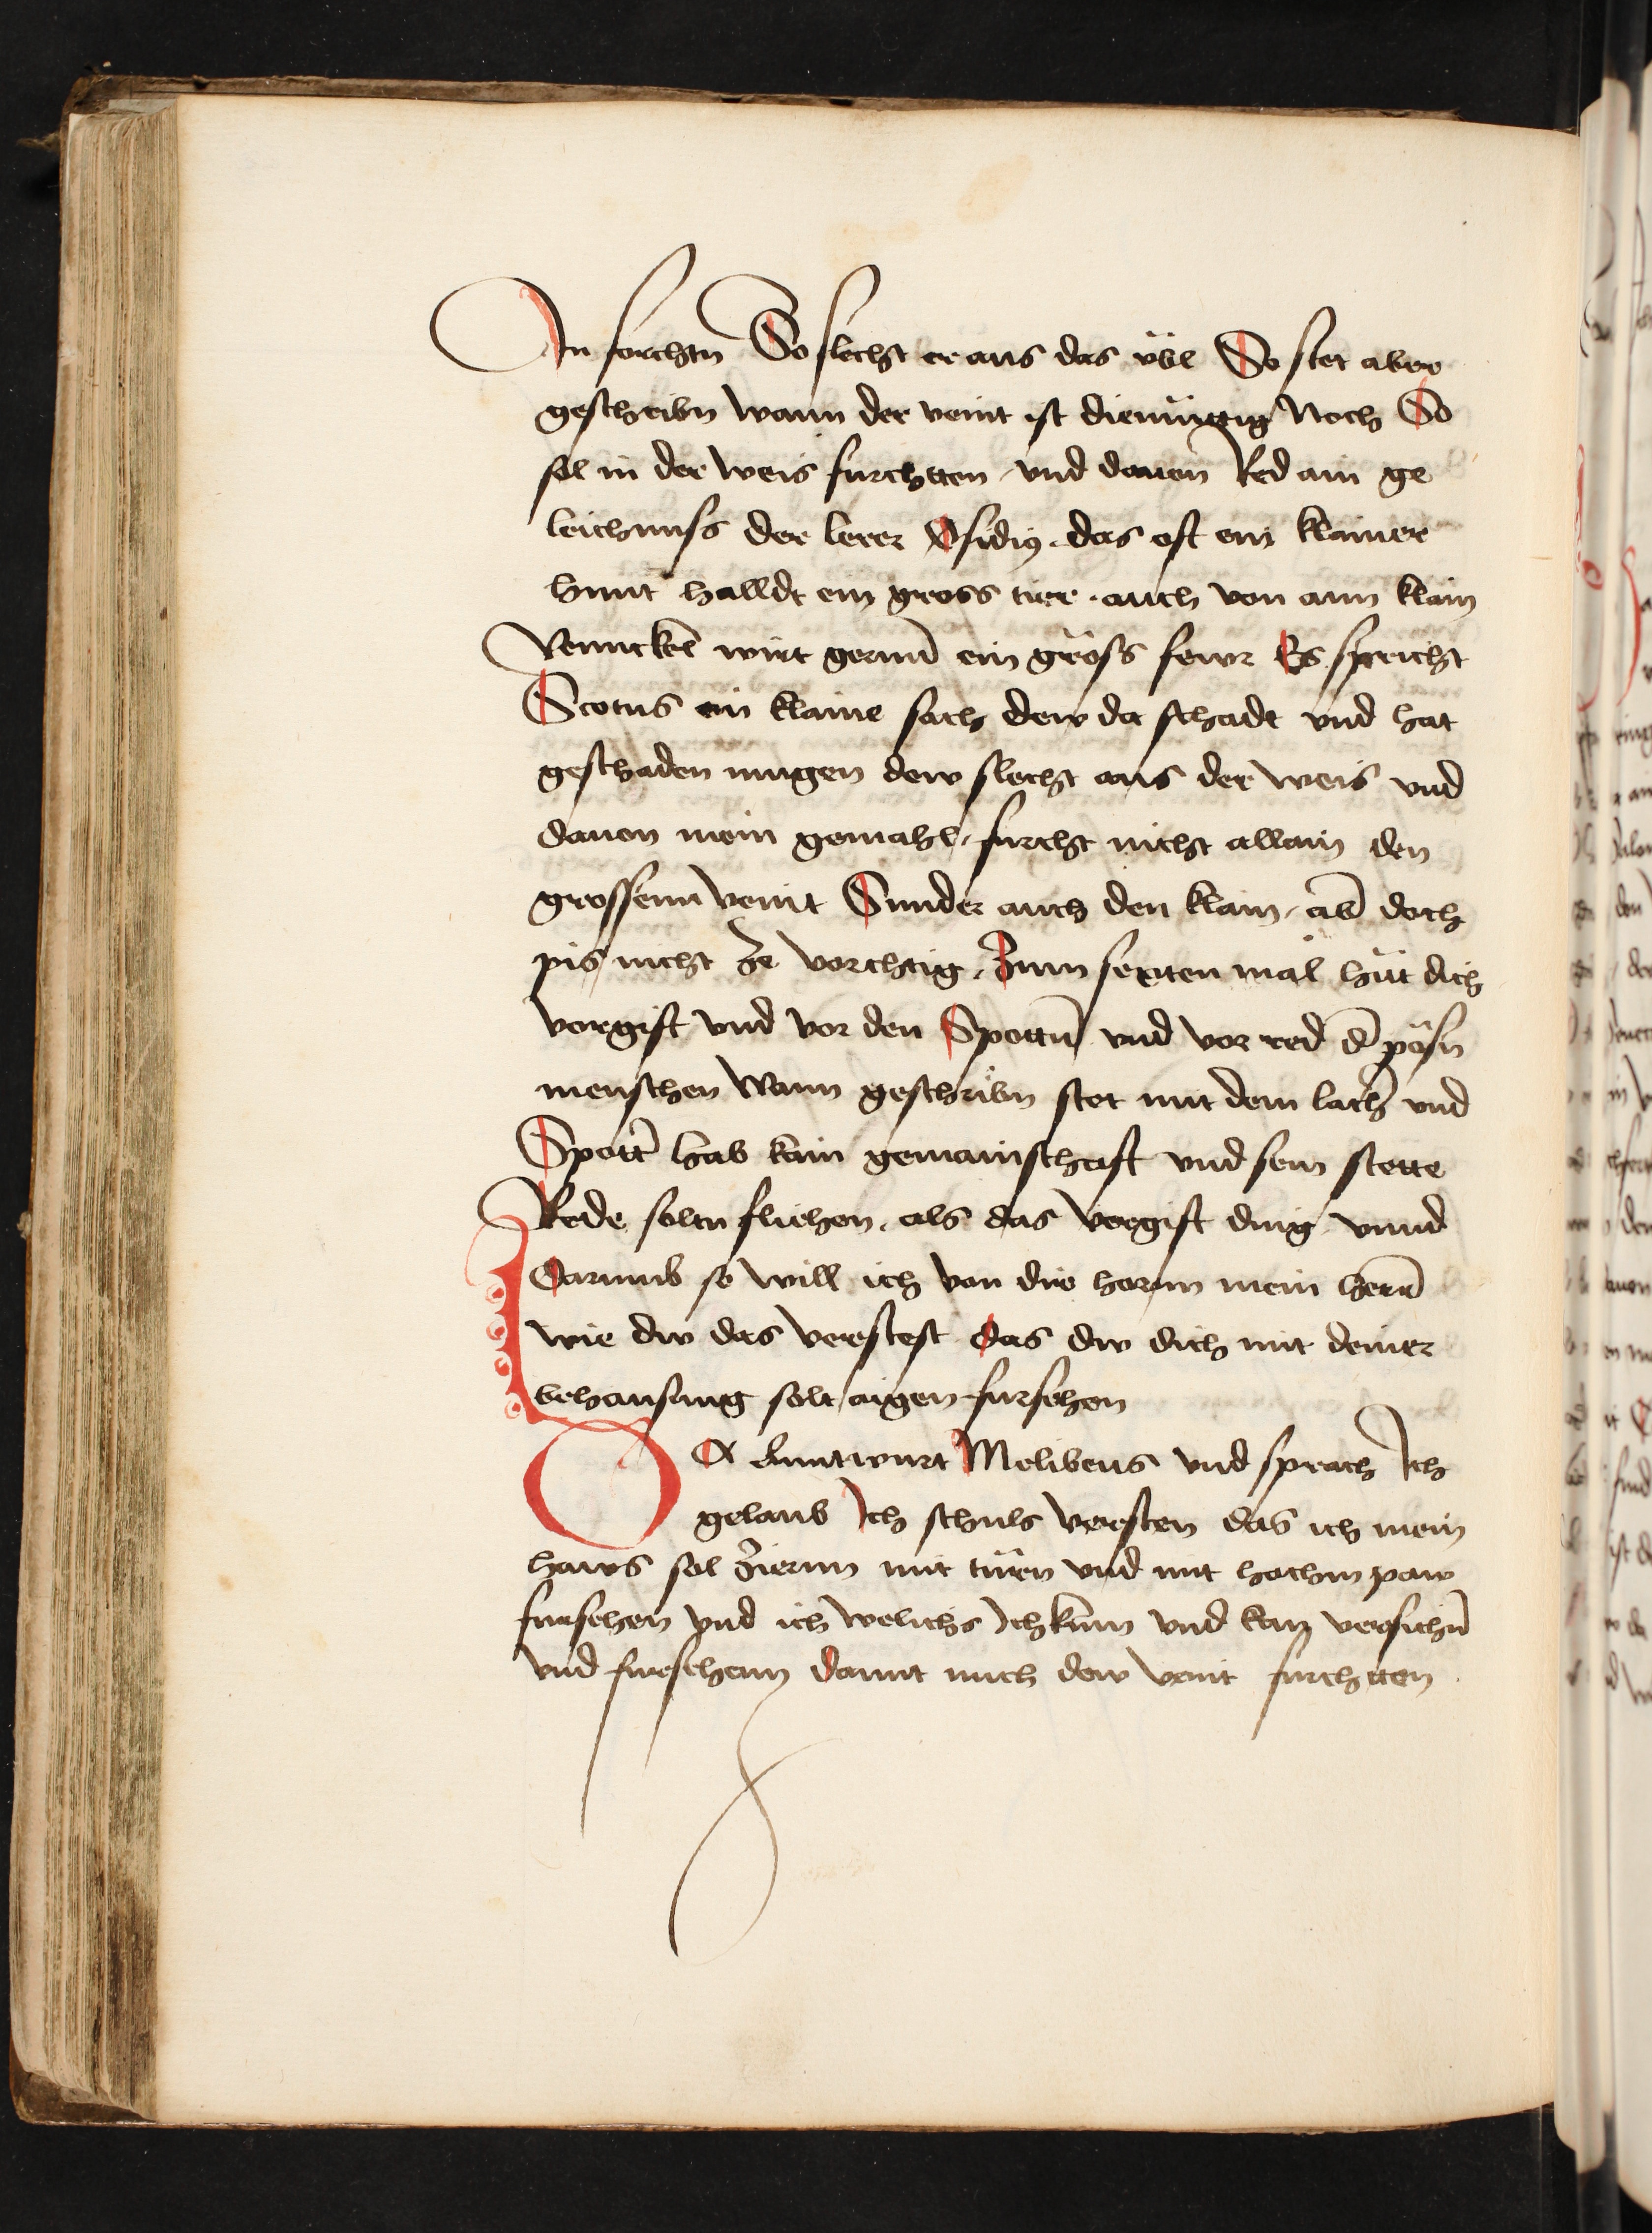 In forchtn So slecht er aus das übl So stet aber
geschribn wann der veint ist diemüttig Noch So
sol in der weis furchtten vnd dauon Red ain ge
leichnuss der lerer Ofidiꝰ das oft ein klainer
hunt halldt ein gross tier auch von ainn klain
Venncken wirt gernn̄ ein gröss fewr Es spricht
Scotus ein klaine sach dew da schadt vnd hat
geschaden mugen dew slecht aus der weis vnd
dauon mein gemahl furcht nicht allain den
grossenn veint Sunder auch den klain ab̄ doch
pis nicht ze vorchtig Zum sexten mal hüt dich
vergift vnd vor den Spottn̄ vnd vor red d̄ pösn
menschen Wann geschribn stet mit dem lach̄ vnd
Spott̄ hab kain gemainschaft vnd sein stette
Rede soltu fliehen als das vergift ding vnnd
Darumb so will ich von dir hornn mein herr̄
wie dw das verstest das dw dich mit deiner
behausung solt aigen fursehen
DA Anntwurt Melibeus vnd sprach Ich
gelaub Ich schuls versten das ich mein
haws sol ziernn mit türn vnd mit hochm paw
fursehen vnd ich welichs Ich kunn vnd kan versichn̄
vnd furschenn damit mich dew veint furchtten